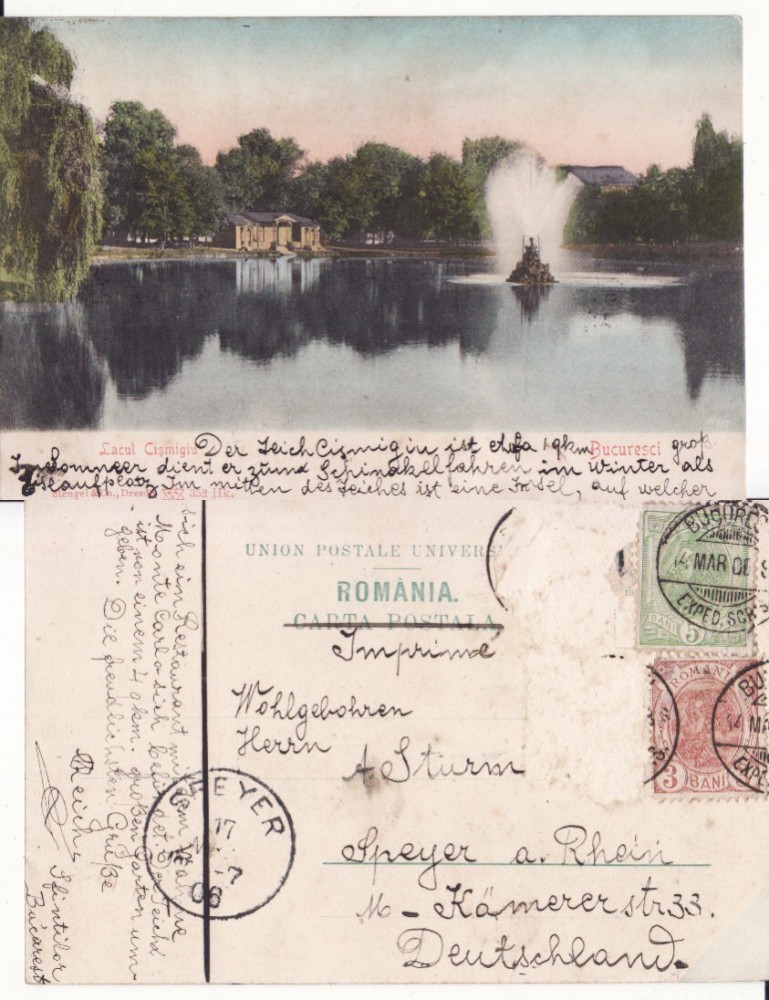 Lacul Cișmigiu
Bucuresci
Der Teich Cişmigiu ist etwa 1 qkm groß.
Im Sommeer dient er zum Schinakelfahren im Winter als
Eislaufplatz Im mitten des Teiches ist eine Insel, auf welcher
Stengel & Co., Dresden 352 Hk.
sich ein Restaurant mit dem Nahme
Monte Carlo sich befindet. Der Teich
ist von einem 4 qkm. großen Garten um-
geben. Die freundlichsten Grüße
Reich
Sfintilor
Bucarest
UNION POSTALE UNIVERS
ROMÂNIA.
CARTA POSTALA
Imprimé
Wohlgebohren
Herrn
A Sturm
Speyer a. Rhein
M - Kämmererstr 33.
Deutschland.
BUCURES
14 MAR 08
EXPED. SCR
BANI 5
ROMANI
3 BANI
BU
14 MA
EXPE
SPEYER
17
08